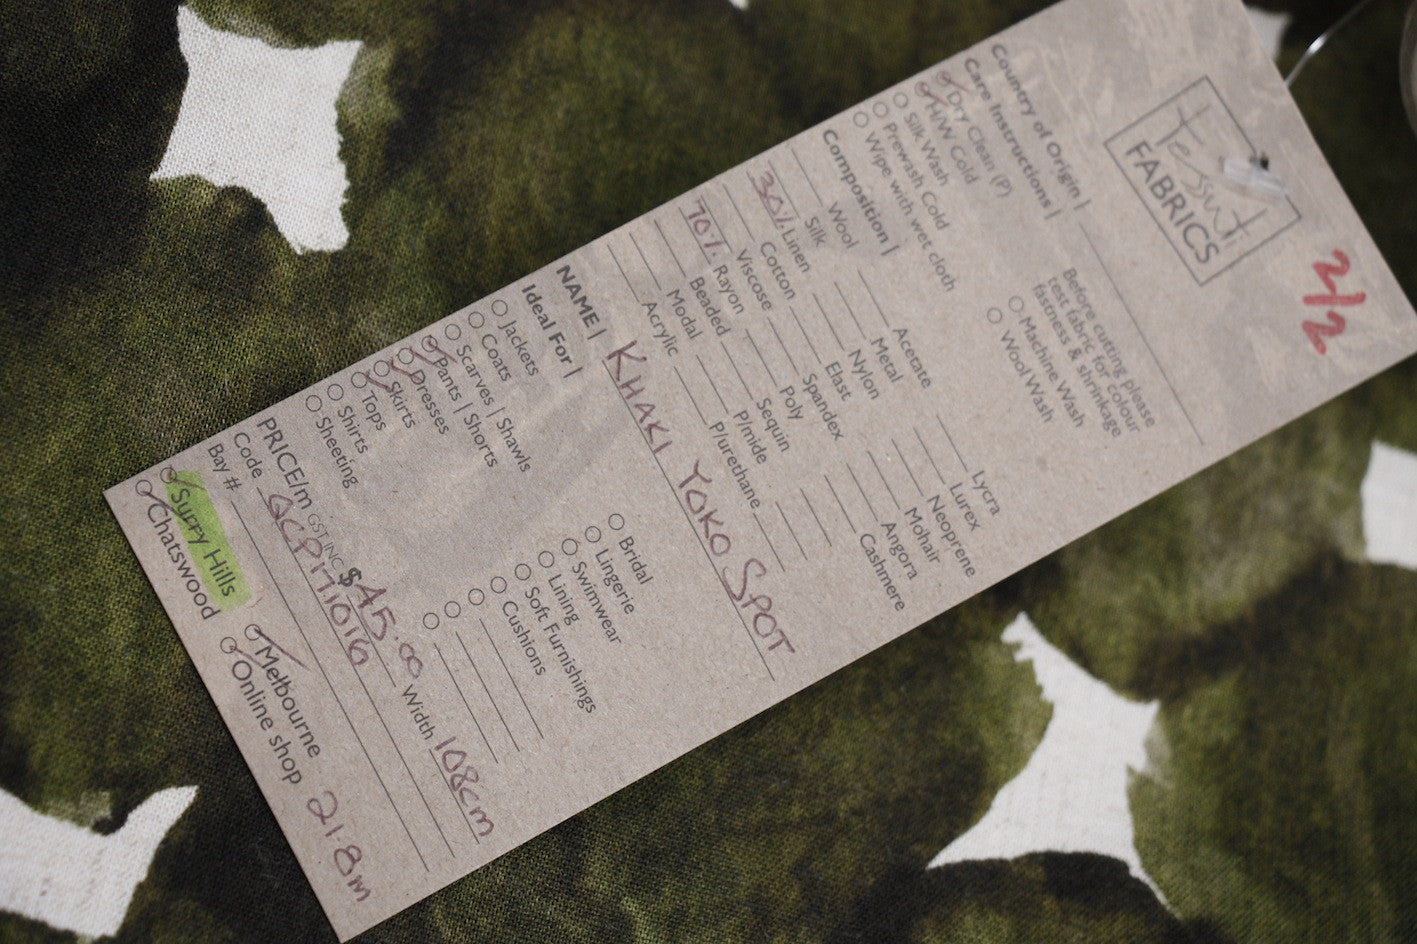 2/2
Tessuti
FABRICS
Country of Origin |
Care Instructions |
Dry Clean (P)
H/W Cold
Silk Wash
Prewash Cold
Wipe with wet cloth
Before cutting please
test fabric for colour
fastness & shrinkage
Machine Wash
Wool Wash
Composition |
Wool Acetate Lycra
Silk Metal Lurex
30% Linen Nylon Neoprene
Cotton Elast Mohair
Viscose Spandex Angora
70% Rayon Poly Cashmere
Beaded Sequin
Modal P/mide
Acrylic P/urethane
NAME | KHAKI YOKO SPOT
Ideal For |
Jackets Bridal
Coats Lingerie
Scarves | Shawls Swimwear
Pants | Shorts Lining
Dresses Soft Furnishings
Skirts Cushions
Tops
Shirts
Sheeting
PRICE/m GST INC $45.00 Width 108cm
Code QCPM1016
Bay #
Surry Hills Melbourne
Chatswood Online shop 21.8m